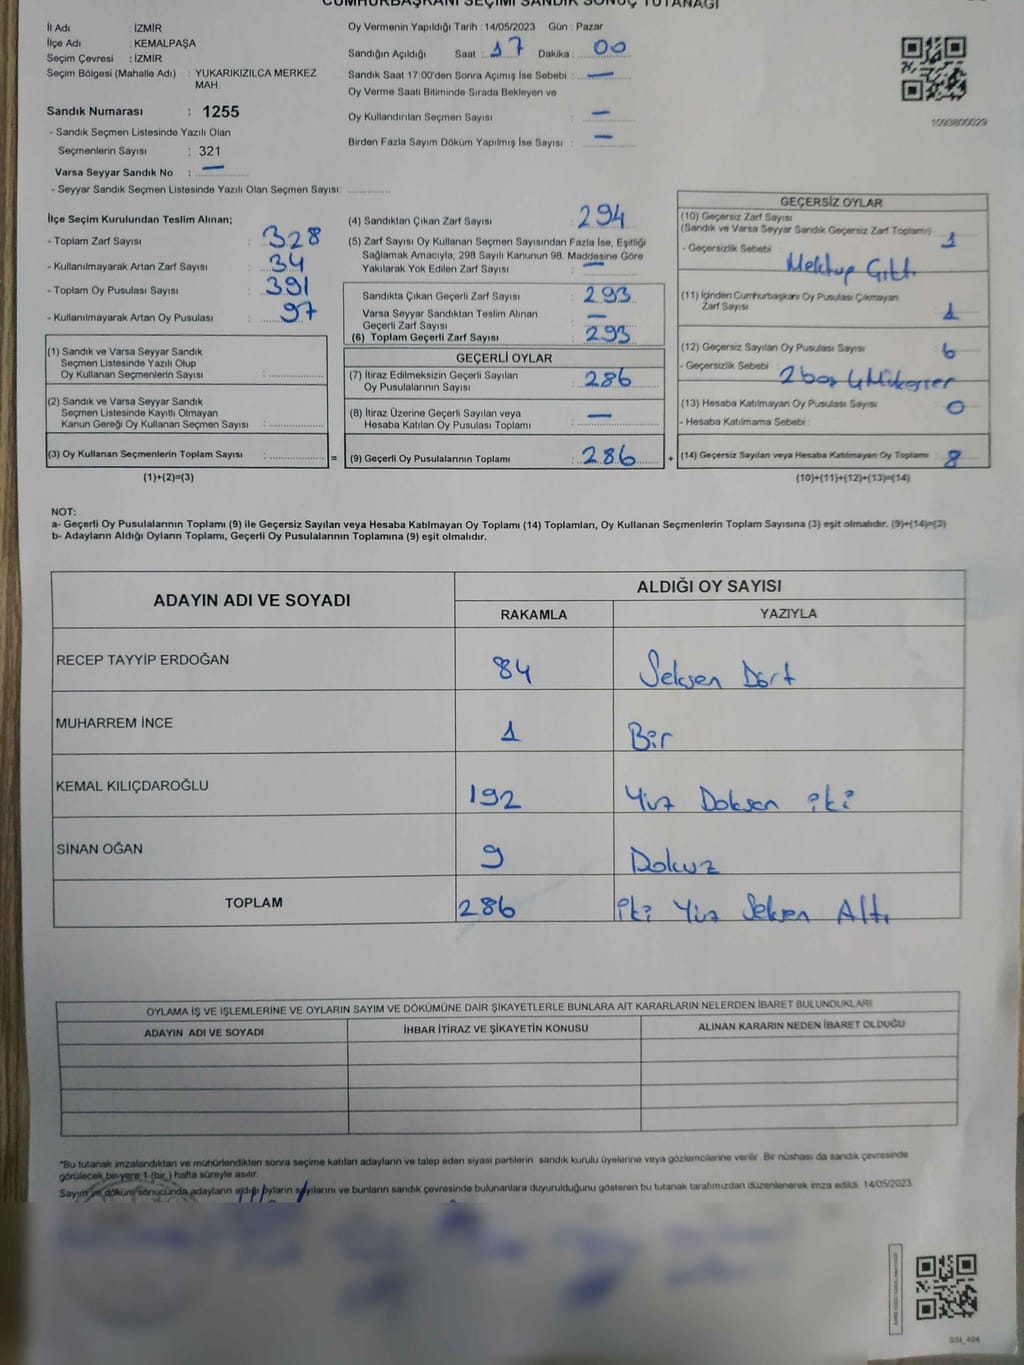 CUMHURBAŞKANI SEÇİMİ SANDIK SONUÇ TUTANAĞI
İl Adı : İZMİR
İlçe Adı : KEMALPAŞA
Seçim Çevresi : İZMİR
Seçim Bölgesi (Mahalle Adı) : YUKARIKIZILCA MERKEZ
MAH.
Sandık Numarası : 1255
- Sandık Seçmen Listesinde Yazılı Olan
Seçmenlerin Sayısı : 321
Varsa Seyyar Sandık No : —
- Seyyar Sandık Seçmen Listesinde Yazılı Olan Seçmen Sayısı: ............
Oy Vermenin Yapıldığı Tarih : 14/05/2023 Gün : Pazar
Sandığın Açıldığı Saat : 17 Dakika : 00
Sandık Saat 17:00'den Sonra Açımış İse Sebebi : —
Oy Verme Saati Bitiminde Sırada Bekleyen ve
Oy Kullandırılan Seçmen Sayısı : —
Birden Fazla Sayım Döküm Yapılmış İse Sayısı : —
1093800029
İlçe Seçim Kurulundan Teslim Alınan;
- Toplam Zarf Sayısı : 328
- Kullanılmayarak Artan Zarf Sayısı : 34
- Toplam Oy Pusulası Sayısı : 391
- Kullanılmayarak Artan Oy Pusulası : 97
(1) Sandık ve Varsa Seyyar Sandık
Seçmen Listesinde Yazılı Olup
Oy Kullanan Seçmenlerin Sayısı : ............
(2) Sandık ve Varsa Seyyar Sandık
Seçmen Listesinde Kayıtlı Olmayan
Kanun Gereği Oy Kullanan Seçmen Sayısı : ............
(3) Oy Kullanan Seçmenlerin Toplam Sayısı : ............ =
(1)+(2)=(3)
(4) Sandıktan Çıkan Zarf Sayısı : 294
(5) Zarf Sayısı Oy Kullanan Seçmen Sayısından Fazla İse, Eşitliği
Sağlamak Amacıyla, 298 Sayılı Kanunun 98. Maddesine Göre
Yakılarak Yok Edilen Zarf Sayısı : —
Sandıkta Çıkan Geçerli Zarf Sayısı : 293
Varsa Seyyar Sandıktan Teslim Alınan
Geçerli Zarf Sayısı : —
(6) Toplam Geçerli Zarf Sayısı : 293
GEÇERLİ OYLAR
(7) İtiraz Edilmeksizin Geçerli Sayılan
Oy Pusulalarının Sayısı : 286
(8) İtiraz Üzerine Geçerli Sayılan veya
Hesaba Katılan Oy Pusulası Toplamı : —
(9) Geçerli Oy Pusulalarının Toplamı : 286 +
GEÇERSİZ OYLAR
(10) Geçersiz Zarf Sayısı
(Sandık ve Varsa Seyyar Sandık Geçersiz Zarf Toplamı) : 1
- Geçersizlik Sebebi : Mektup Çıktı
(11) İçinden Cumhurbaşkanı Oy Pusulası Çıkmayan
Zarf Sayısı : 1
(12) Geçersiz Sayılan Oy Pusulası Sayısı : 6
- Geçersizlik Sebebi : 2 boş 4 Mükerrer
(13) Hesaba Katılmayan Oy Pusulası Sayısı : 0
- Hesaba Katılmama Sebebi :
(14) Geçersiz Sayılan veya Hesaba Katılmayan Oy Toplamı : 8
(10)+(11)+(12)+(13)=(14)
NOT:
a- Geçerli Oy Pusulalarının Toplamı (9) ile Geçersiz Sayılan veya Hesaba Katılmayan Oy Toplamı (14) Toplamları, Oy Kullanan Seçmenlerin Toplam Sayısına (3) eşit olmalıdır. (9)+(14)=(3)
b- Adayların Aldığı Oyların Toplamı, Geçerli Oy Pusulalarının Toplamına (9) eşit olmalıdır.
ADAYIN ADI VE SOYADI ALDIĞI OY SAYISI
RAKAMLA YAZIYLA
RECEP TAYYİP ERDOĞAN 84 Seksen Dört
MUHARREM İNCE 1 Bir
KEMAL KILIÇDAROĞLU 192 Yüz Doksan iki
SİNAN OĞAN 9 Dokuz
TOPLAM 286 iki Yüz Seksen Altı
OYLAMA İŞ VE İŞLEMLERİNE VE OYLARIN SAYIM VE DÖKÜMÜNE DAİR ŞİKAYETLERLE BUNLARA AİT KARARLARIN NELERDEN İBARET BULUNDUKLARI
ADAYIN ADI VE SOYADI İHBAR İTİRAZ VE ŞİKAYETİN KONUSU ALINAN KARARIN NEDEN İBARET OLDUĞU
*Bu tutanak imzalandıktan ve mühürlendikten sonra seçime katılan adayların ve talep eden siyasi partilerin sandık kurulu üyelerine veya gözlemcilerine verilir. Bir nüshası da sandık çevresinde
görülecek bir yere 1 (bir) hafta süreyle asılır.
Sayım ve döküm sonucunda adayların aldığı oyların sayılarını ve bunların sandık çevresinde bulunanlara duyurulduğunu gösteren bu tutanak tarafımızdan düzenlenerek imza edildi. 14/05/2023